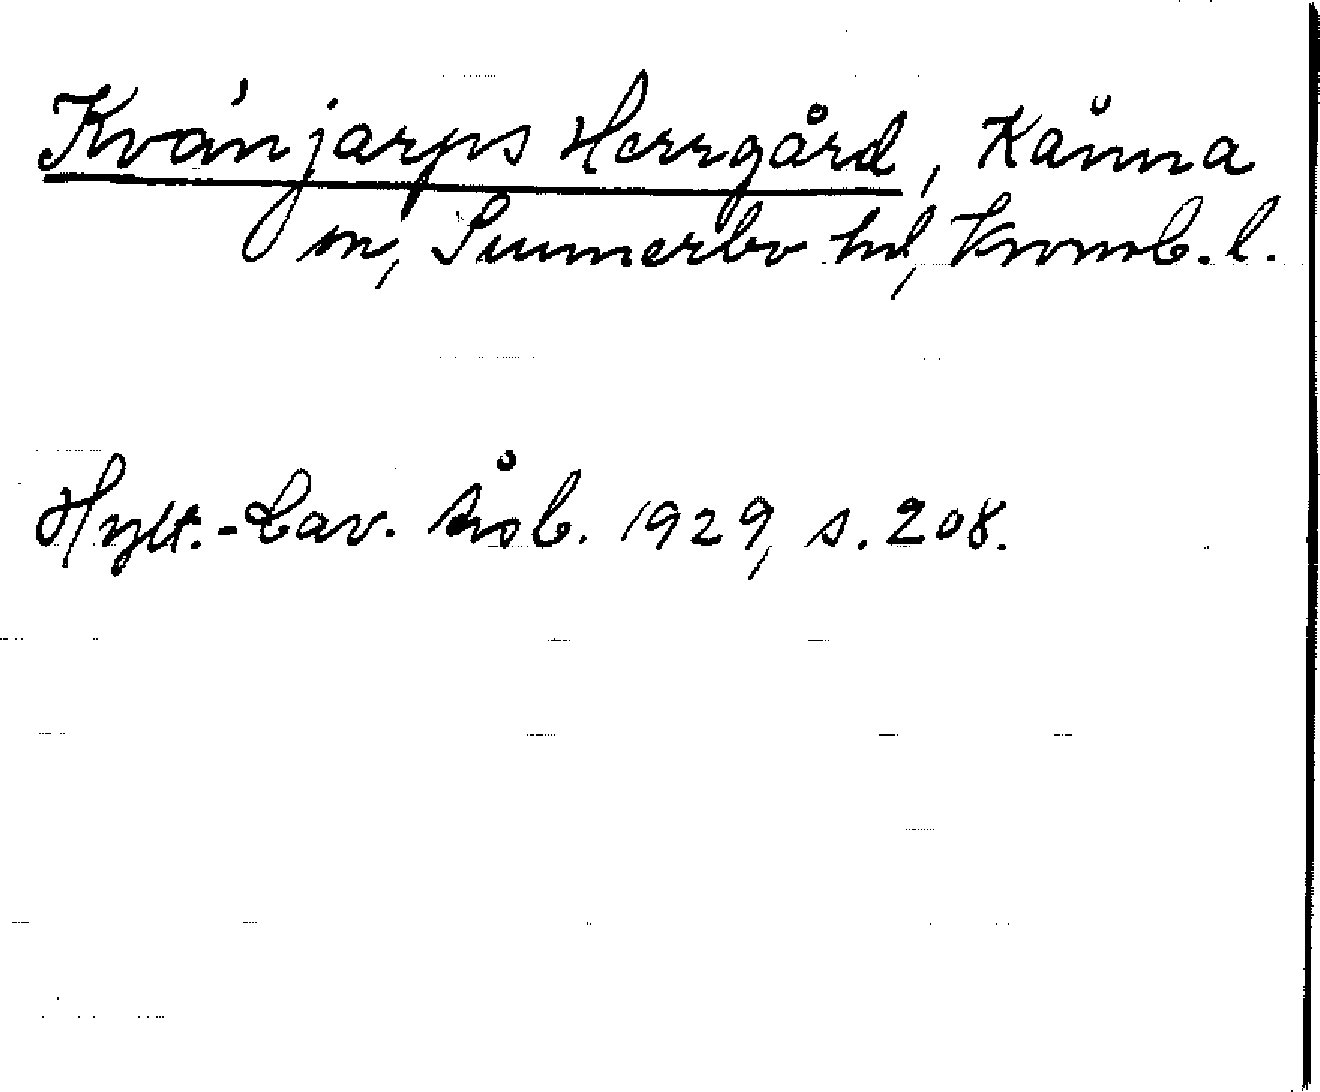 Kvänjarps Herrgård, Kånna
sn, Sunnerbo hd, Kronob. l.
Hylt.-Cav. Årsb. 1929, s. 208.